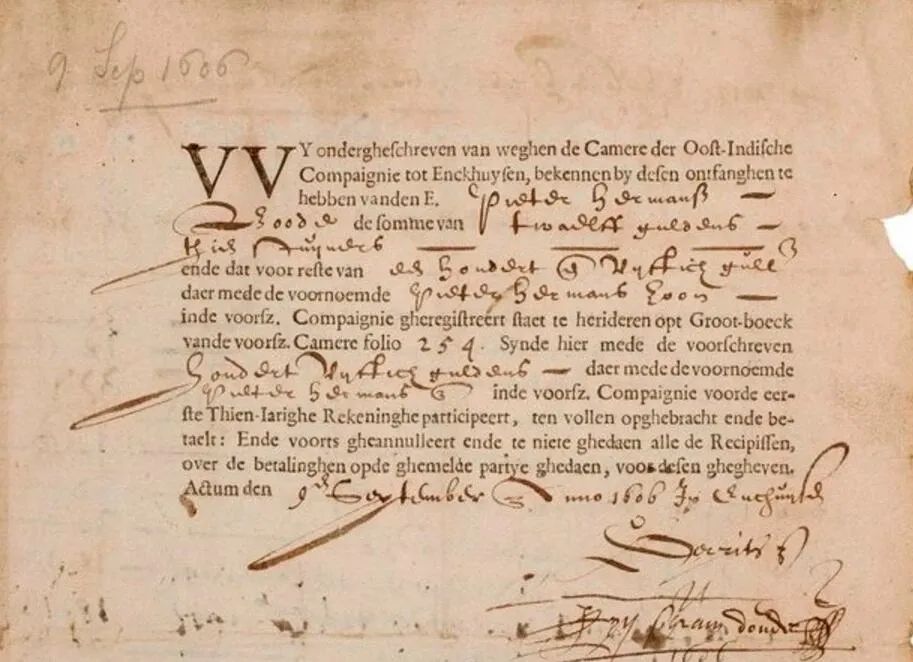 9 Sep 1606
VVY ondergheschreven van weghen de Camere der Oost-Indische
Compaignie tot Enckhuysen, bekennen by desen ontfanghen te
hebben vanden E. Pieter Hermansz
de somme van twaelff guldens
thien stuyvers
ende dat voor reste van hondert vyftich gull
daer mede de voornoemde Pieter Hermans
inde voorsz. Compaignie gheregistreert staet te herideren opt Groot-boeck
vande voorsz. Camere folio 254. Synde hier mede de voorschreven
hondert vyftich guldens daer mede de voornoemde
Pieter Hermans inde voorsz. Compaignie voorde eer-
ste Thien-Iarighe Rekeninghe participeert, ten vollen opghebracht ende be-
taelt: Ende voorts gheannulleert ende te niete ghedaen alle de Recipissen,
over de betalinghen opde ghemelde partye ghedaen, voor desen ghegheven.
Actum den 9en September Anno 1606 In Enchuysen
1606